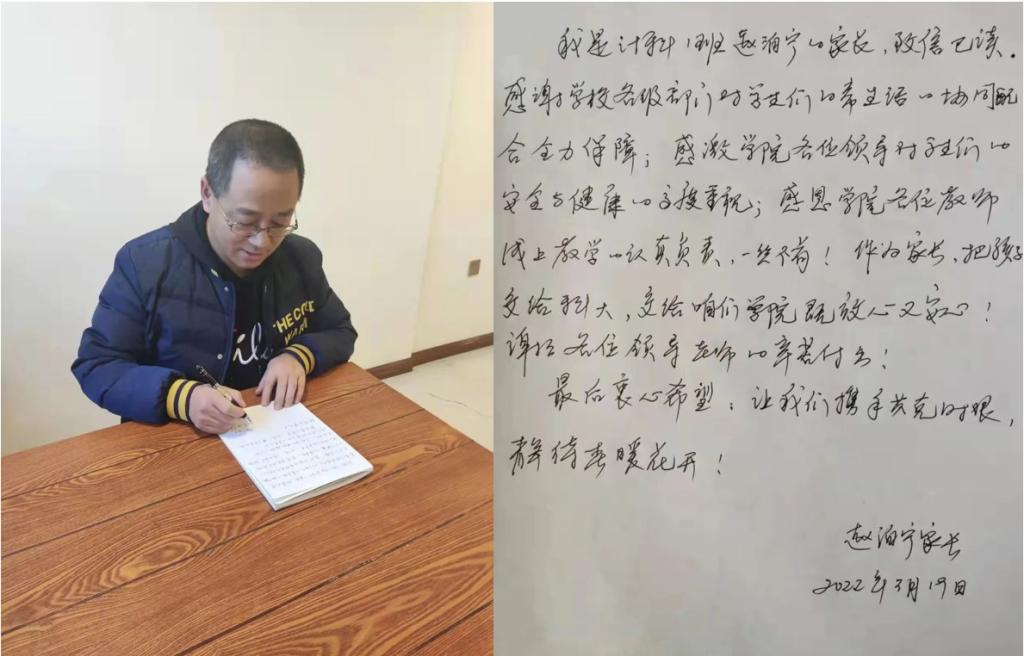 THE CO
WAR
我是计科1班赵泊宁的家长,致信已读.
感谢学校各级部门对学生们日常生活的协同配
合全力保障;感激学院各位领导对学生们的
安全与健康的高度重视;感恩学院各位教师
线上教学的认真负责,一丝不苟!作为家长,把孩子
交给科大,交给咱们学院既放心又安心!
谢谢各位领导老师的辛苦付出!
最后衷心希望:让我们携手共克时艰,
静待春暖花开!
赵泊宁家长
2022年3月19日